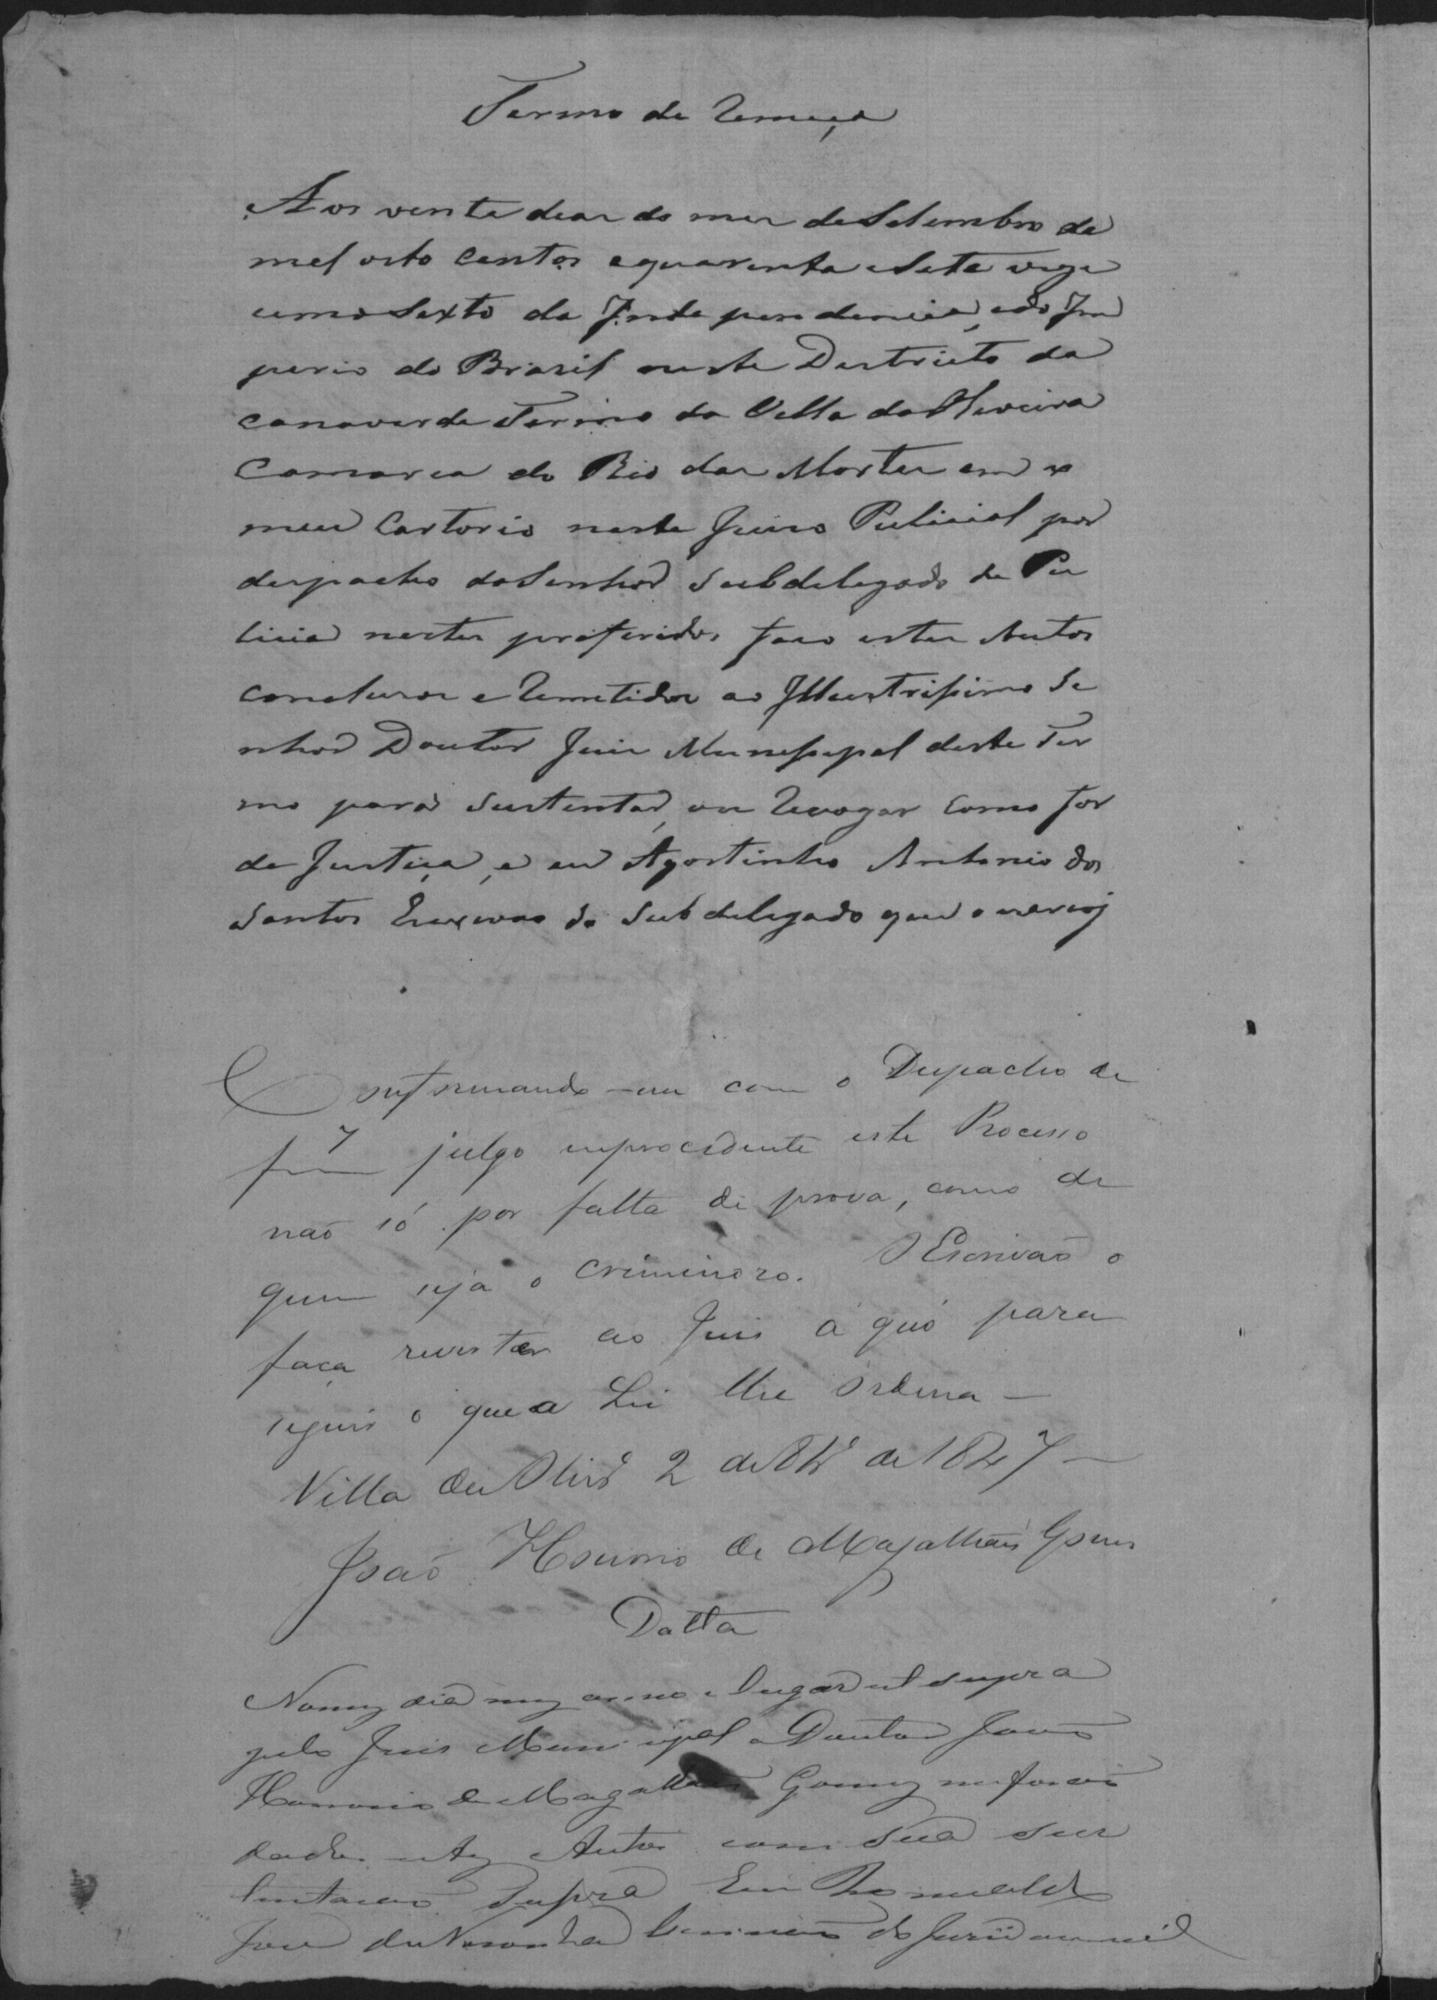 Termo de Remeça
Aos vinte dias do mes de Setembro de
mel oito centos equarenta eSete vige
cimo Sexto da Independencia, edo Im
perio do Brasil neste Destricto da
Canaverde Termo da Villa da Oliveira
Comarca do Rio das Mortes em
meu Cartorio neste Juizo Pulicial por
despacho do Senhor Subdelegado de Pu
licia nestes proferido, faço estes Autos
concluzos e Remetidos ao Illustrissimo Se
nhor Doutor Juiz Munesipal deste Ter
mo para Sustentar, ou Revogar como for
de Justiça, e eu Agostinho Antonio dos
Santos Escrivao do Subdelegado que o escrevj
Conformando-me com o Despacho de
f 7 julgo improcedente este Processo
não só por falta de prova, como de
quem seja o criminozo. O Escrivão o
faça reverter ao Juis á quó para
seguir o que a Lei lhe ordena —
Villa da Olivrª 2 de 8bro de 1847 —
João Honorio de Magalhães Gomes
Datta
No mesmo dia mez anno e lugar ut supra
pelo Juis Municipal o Doutor João
Honorio de Magalhães Gomes me forão
dados estes Autos com sua sus
tentação supra Eu Romualdo
José de Noronha Escrivão do Jurii o escrevi